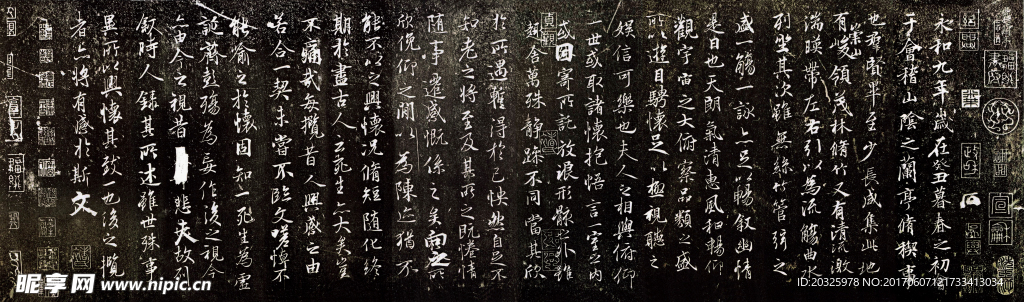 永和九年歲在癸丑暮春之初會
于會稽山陰之蘭亭脩禊事
也群賢畢至少長咸集此地
有崇山峻領茂林脩竹又有清流激
湍暎帶左右引以為流觴曲水
列坐其次雖無絲竹管弦之
盛一觴一詠亦足以暢敘幽情
是日也天朗氣清惠風和暢仰
觀宇宙之大俯察品類之盛
所以遊目騁懷足以極視聽之
娛信可樂也夫人之相與俯仰
一世或取諸懷抱悟言一室之內
或因寄所託放浪形骸之外雖
趣舍萬殊靜躁不同當其欣
於所遇蹔得於己怏然自足不
知老之將至及其所之既惓情
隨事遷感慨係之矣向之所
欣俛仰之閒以為陳迹猶不
能不以之興懷況脩短隨化終
期於盡古人云死生亦大矣豈
不痛哉每攬昔人興感之由
若合一契未嘗不臨文嗟悼不
能喻之於懷固知一死生為虛
誕齊彭殤為妄作後之視今
亦由今之視昔悲夫故列
敘時人錄其所述雖世殊事
異所以興懷其致一也後之攬
者亦將有感於斯文
昵享网 www.nipic.cn
ID:20325978 NO:20170607121733413034